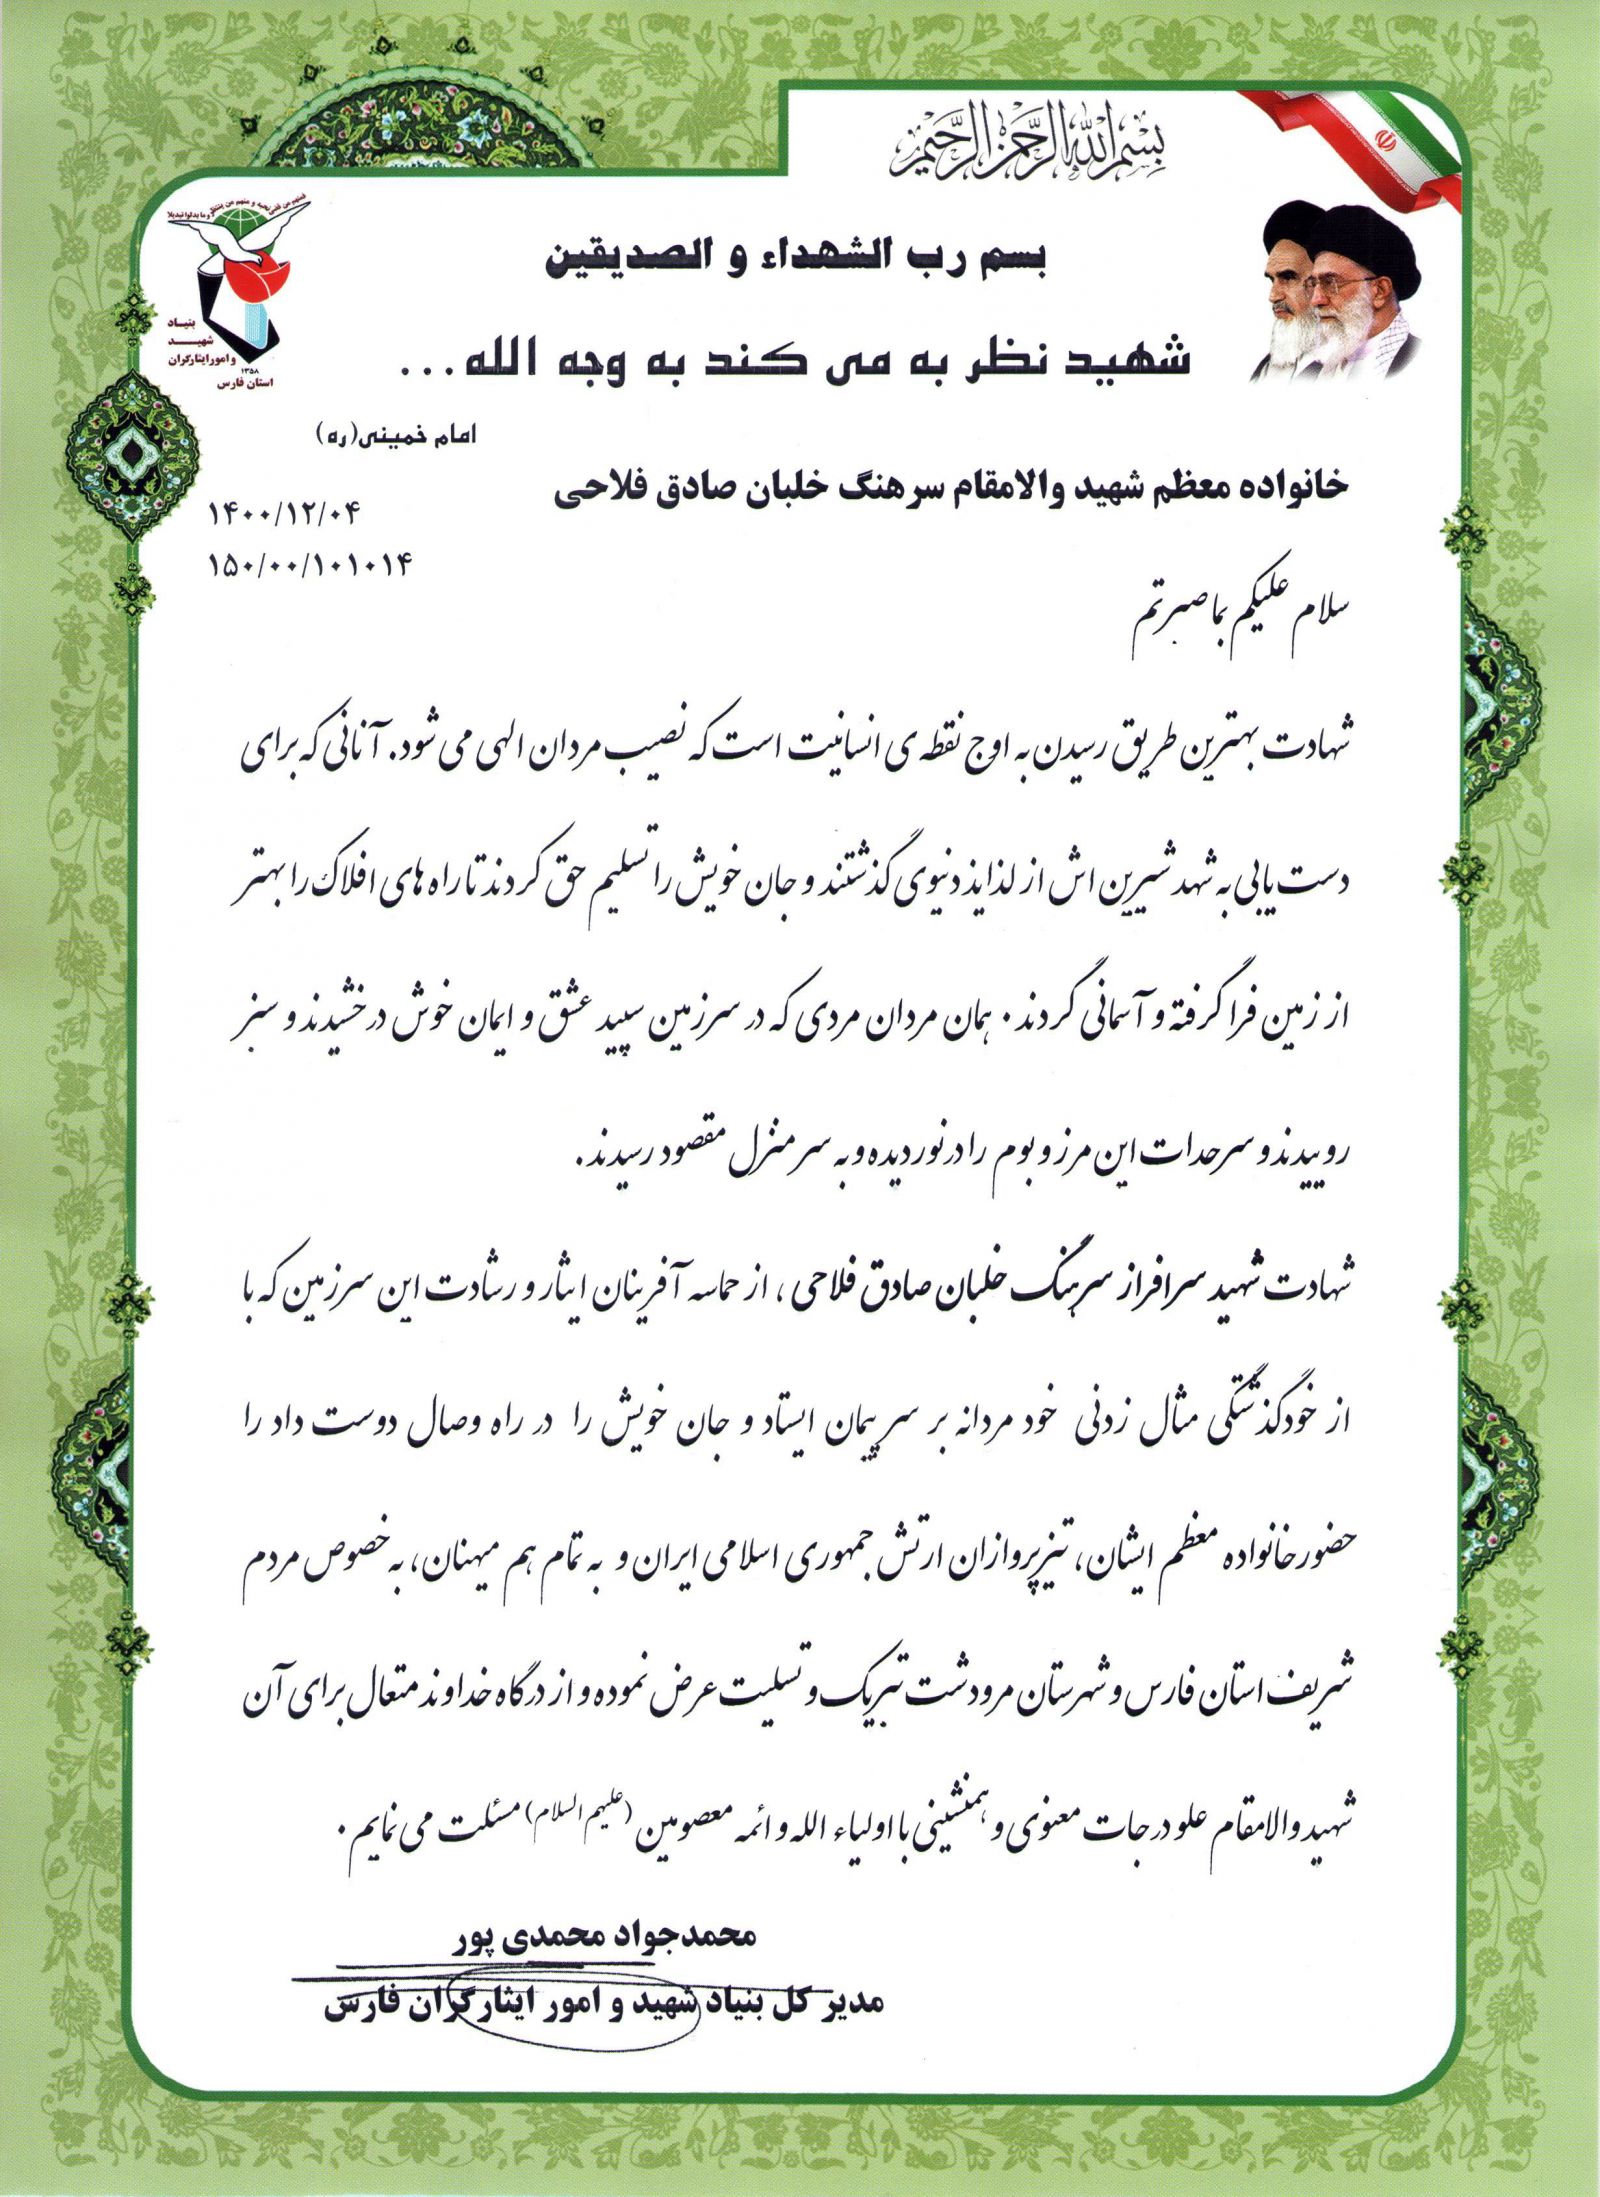 بسم الله الرحمن الرحیم
فمنهم من قضی نحبه و منهم من ینتظر و ما بدلوا تبدیلا
بنیاد
شهید
و امور ایثارگران
۱۳۵۸
استان فارس
بسم رب الشهداء و الصدیقین
شهید نظر به می کند به وجه الله...
امام خمینی(ره)
خانواده معظم شهید والامقام سرهنگ خلبان صادق فلاحی
۱۴۰۰/۱۲/۰۴
۱۵۰/۰۰/۱۰۱۰۱۴
سلام علیکم بما صبرتم
شهادت بهترین طریق رسیدن به اوج نقطه ی انسانیت است که نصیب مردان الهی می شود. آنانی که برای
دست یابی به شهد شیرین اش از لذایذ دنیوی گذشتند و جان خویش را تسلیم حق کردند تا راه های افلاک را بهتر
از زمین فرا گرفته و آسمانی گردند. همان مردان مردی که در سرزمین سپید عشق و ایمان خوش درخشیدند و سبز
روییدند و سرحدات این مرز و بوم را درنوردیده و به سر منزل مقصود رسیدند.
شهادت شهید سرافراز سرهنگ خلبان صادق فلاحی، از حماسه آفرینان ایثار و رشادت این سرزمین که با
از خودگذشتگی مثال زدنی خود مردانه بر سر پیمان ایستاد و جان خویش را در راه وصال دوست داد را
حضور خانواده معظم ایشان، تیزپروازان ارتش جمهوری اسلامی ایران و به تمام هم میهنان، به خصوص مردم
شریف استان فارس و شهرستان مرودشت تبریک و تسلیت عرض نموده و از درگاه خداوند متعال برای آن
شهید والامقام علو درجات معنوی و همنشینی با اولیاء الله و ائمه معصومین (علیهم السلام) مسئلت می نمایم.
محمدجواد محمدی پور
مدیر کل بنیاد شهید و امور ایثارگران فارس